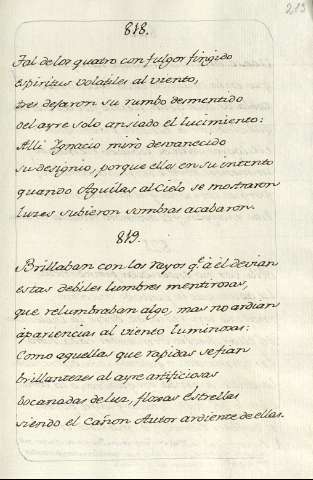 213
818.
Tal de los quatro con fulgor fingido
espiritus volatiles al viento,
tres dejaron su rumbo desmentido
del ayre solo ansiado el lucimiento:
Alli Ygnacio miró desvanecido
su designio, porque ellos en su intento
quando Aguilas al Cielo se mostraron
luzes subieron sombras acabaron.
819.
Brillaban con los rayos q.e à èl devian
estas debiles lumbres mentirosas,
que relumbraban algo, mas no ardian
apariencias al viento luminosas:
Como aquellas que rapidas se fian
brillantezes al ayre artificiosas
bocanadas de luz, floxas Estrellas
siendo el Cañon Autor ardiente de ellas.